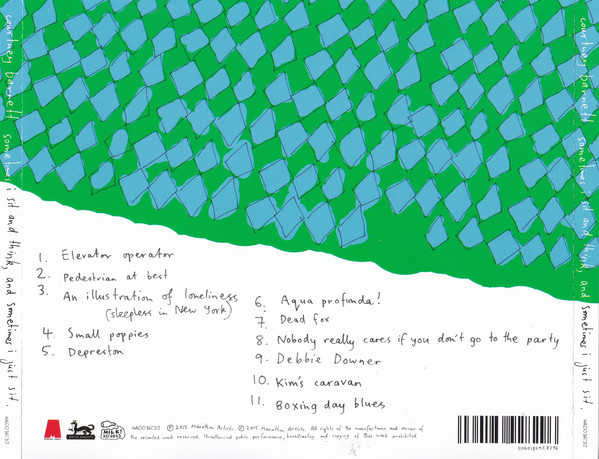 courtney barnett sometimes i sit and think, and sometimes i just sit.
1. Elevator operator
2. Pedestrian at best
3. An illustration of loneliness
(sleepless in New York)
4. Small poppies
5. Depreston
6. Aqua profunda!
7. Dead fox
8. Nobody really cares if you don't go to the party
9. Debbie Downer
10. Kim's caravan
11. Boxing day blues
MILK!
RECORDS
℗ 2015 Marathon Artists © 2015 Marathon Artists. All rights of the manufacturer and owner of
the recorded work reserved. Unauthorised public performance, broadcasting and copying of this work prohibited.
courtney barnett sometimes i sit and think, and sometimes i just sit.